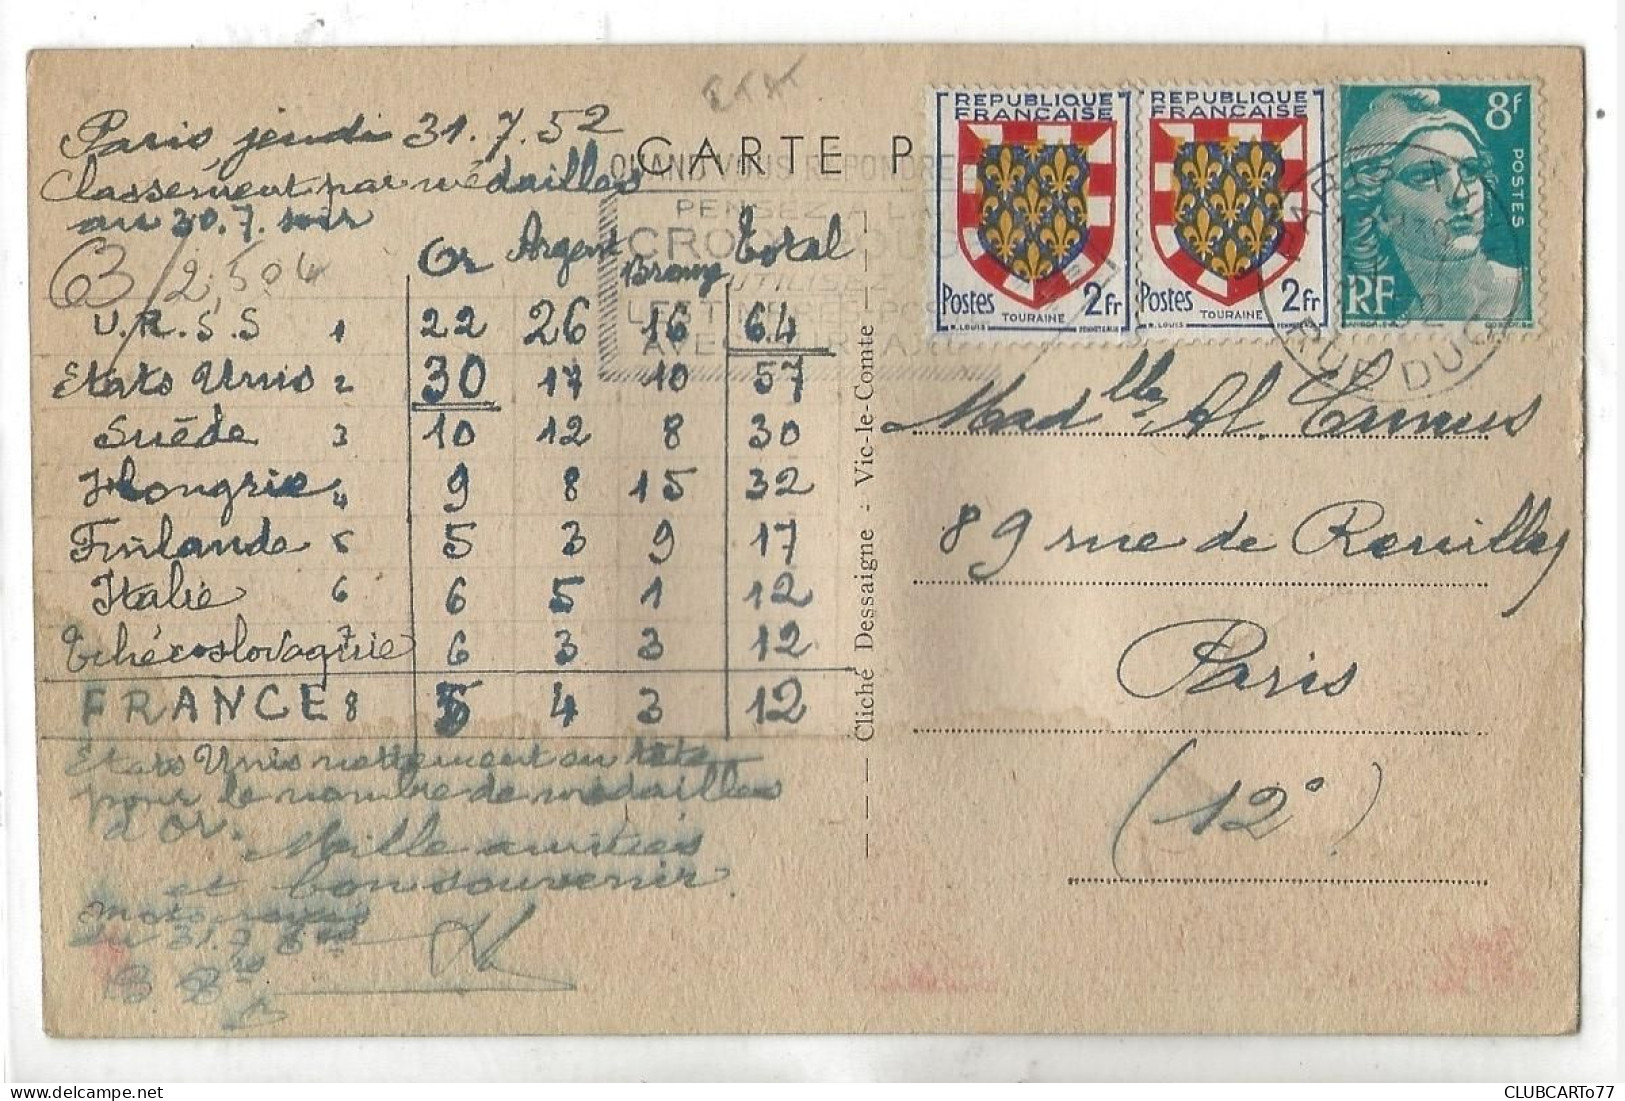 ETAT
Paris, jeudi 31.7.52
Classement par médailles
au 30.7. soir
63 / 2,50 4
CARTE P
QUAND VOUS REPONDRE
PENSEZ A LA
CROIX ROU
UTILISEZ
LES TIMBRES POS
AVEC
Or Argent Bronz Total
U.R.S.S 1 22 26 16 64
Etats Unis 2 30 17 10 57
Suède 3 10 12 8 30
Hongrie 4 9 8 15 32
Finlande 5 5 3 9 17
Italie 6 6 5 1 12
Tchécoslovaquie 7 6 3 3 12
FRANCE 8 5 4 3 12
Etats Unis nettement en tête
pour le nombre de médailles
d'or.
Mille amitiés
et bon souvenir.
du 31.7
Cliché Dessaigne - Vic-le-Comte
REPUBLIQUE
FRANÇAISE
Postes 2fr
TOURAINE
R. LOUIS
REPUBLIQUE
FRANÇAISE
Postes 2fr
TOURAINE
R. LOUIS
8F
POSTES
RF
PARIS
RUE DUC
Madlle Al. Camus
89 rue de Reuilly
Paris
(12°)
CLUBCARTo77